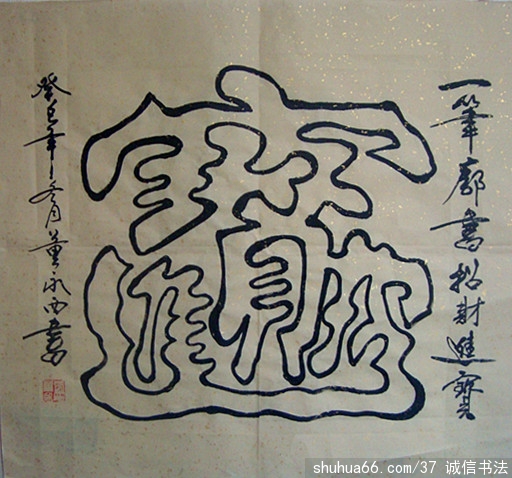 一筆廓書招財進寶
癸巳年冬月董永西書
shuhua66.com/37 诚信书法